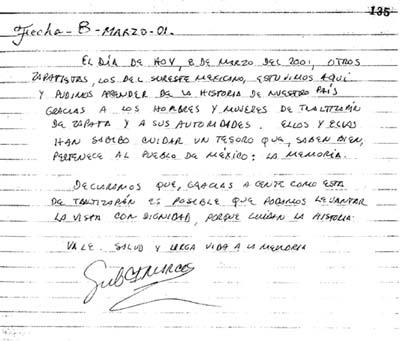 135
Fecha- 8-MARZO-01.
EL DÍA DE HOY, 8 DE MARZO DEL 2001, OTROS
ZAPATISTAS, LOS DEL SURESTE MEXICANO, ESTUVIMOS AQUÍ
Y PUDIMOS APRENDER DE LA HISTORIA DE NUESTRO PAÍS
GRACIAS A LOS HOMBRES Y MUJERES DE TLALTIZAPÁN
DE ZAPATA Y A SUS AUTORIDADES. ELLOS Y ELLAS
HAN SABIDO CUIDAR UN TESORO QUE, SABEN BIEN,
PERTENECE AL PUEBLO DE MÉXICO: LA MEMORIA.
DECLARAMOS QUE, GRACIAS A GENTE COMO ESTA
DE TLALTIZAPÁN ES POSIBLE QUE PODAMOS LEVANTAR
LA VISTA CON DIGNIDAD, PORQUE CUIDAN LA HISTORIA.
VALE. SALUD Y LARGA VIDA A LA MEMORIA
SubCtMarcos